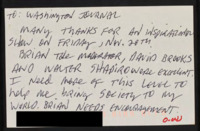 TO: WASHINGTON JOURNAL
MANY THANKS FOR AN INSPIRATIONAL
SHOW ON FRIDAY, NOV. 24TH.
BRIAN THE MODERATOR, DAVID BROOKS
AND WALTER SHAPIRO WERE EXCELLENT.
I NEED MORE OF THIS LEVEL TO
HELP ME BRING SOCIETY TO MY
WORLD. BRIAN NEEDS ENCOURAGEMENT.